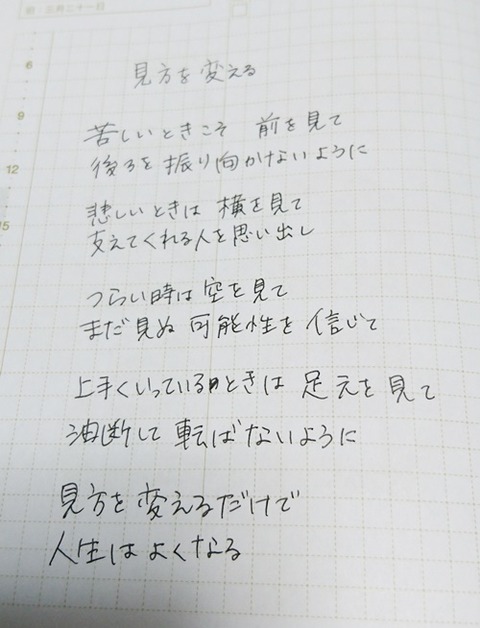 六月二十一日
6
9
12
15
見方を変える
苦しいときこそ 前を見て
後ろを振り向かないように
悲しいときは 横を見て
支えてくれる人を思い出し
つらい時は 空を見て
まだ見ぬ 可能性を 信じて
上手くいっているときは 足元を 見て
油断して 転ばないように
見方を 変えるだけで
人生は よくなる